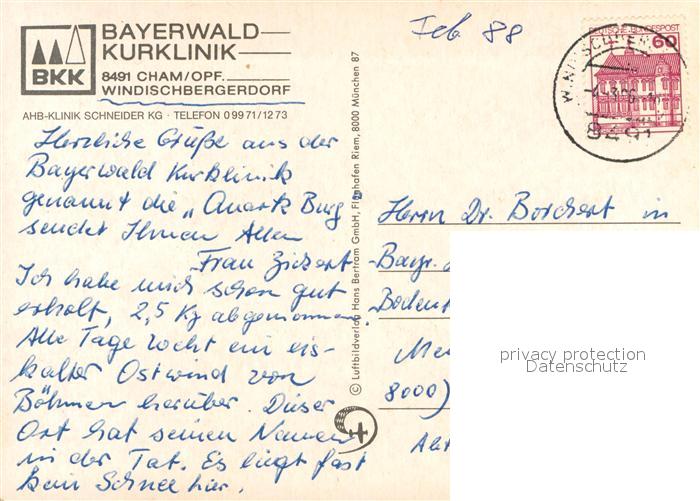 BAYERWALD
KURKLINIK
BKK
8491 CHAM/OPF.
WINDISCHBERGERDORF
AHB-KLINIK SCHNEIDER KG · TELEFON 0 99 71/12 73
Feb 88
DEUTSCHE BUNDESPOST
60
8491
Herzliche Grüße aus der
Bayerwald Kurklinik
genannt die „Quartz Burg"
sendet Ihnen Allen
Frau Zickert
Ich habe mich schon gut
erholt, 2,5 Kg abgenommen.
Alle Tage weht ein eis-
kalter Ostwind von
Böhmen herüber. Dieser
Ort hat seinen Namen
in der Tat. Es liegt fast
kein Schnee hier.
© Luftbildverlag Hans Bertram GmbH, Flughafen Riem, 8000 München 87
Herrn Dr. Borchert in
Bayr.
Bodens
8000)
privacy protection
Datenschutz